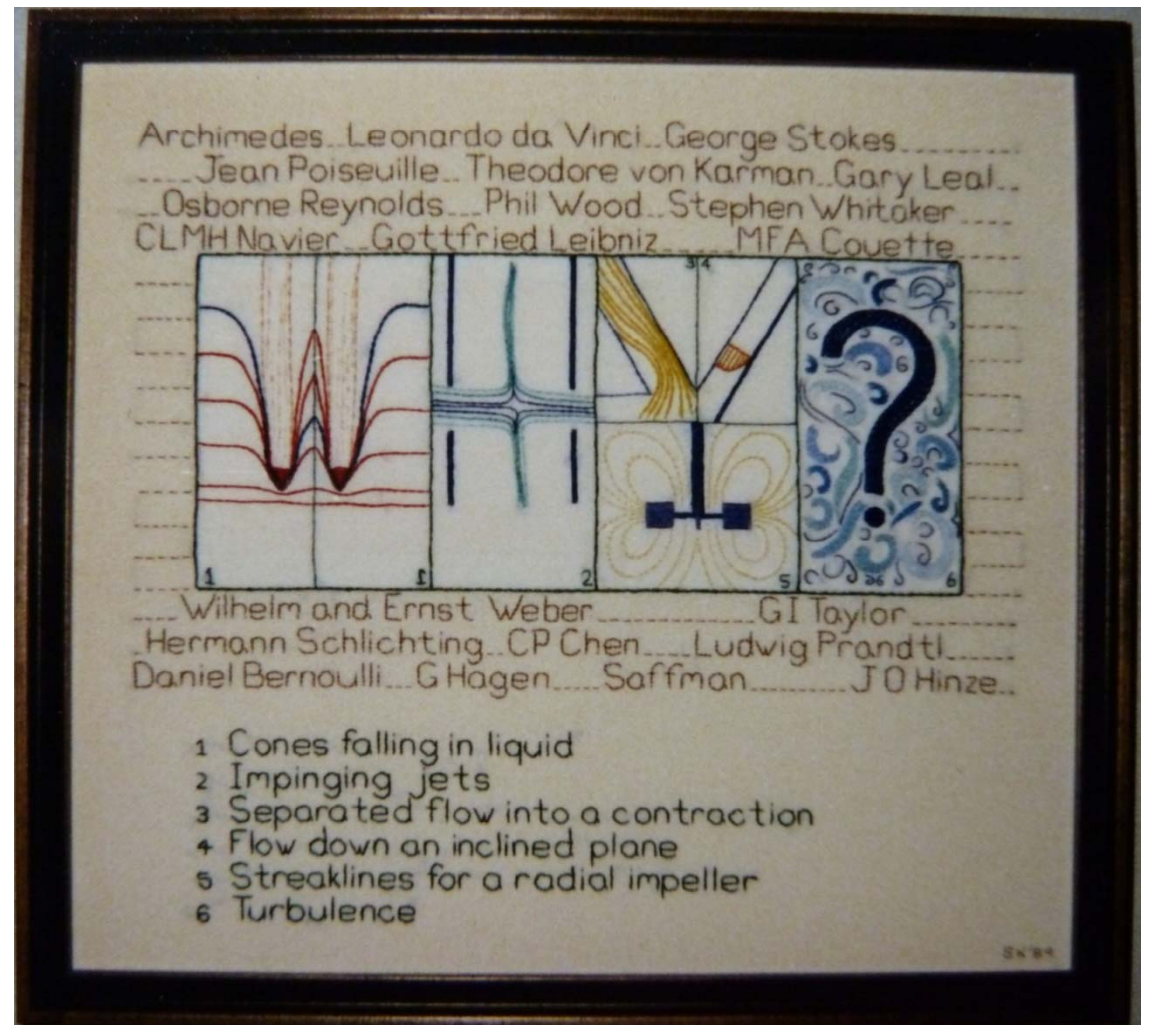 Archimedes...Leonardo da Vinci...George Stokes............
.....Jean Poiseuille...Theodore von Karman...Gary Leal...
...Osborne Reynolds....Phil Wood...Stephen Whitaker.....
CLMH Navier....Gottfried Leibniz......MFA Couette.......
3 4
1 1 2 5 6
.....Wilhelm and Ernst Weber................GI Taylor...........
.Hermann Schlichting...CP Chen.....Ludwig Prandtl.......
Daniel Bernoulli....G Hagen.....Saffman..........J O Hinze...
1 Cones falling in liquid
2 Impinging jets
3 Separated flow into a contraction
4 Flow down an inclined plane
5 Streaklines for a radial impeller
6 Turbulence